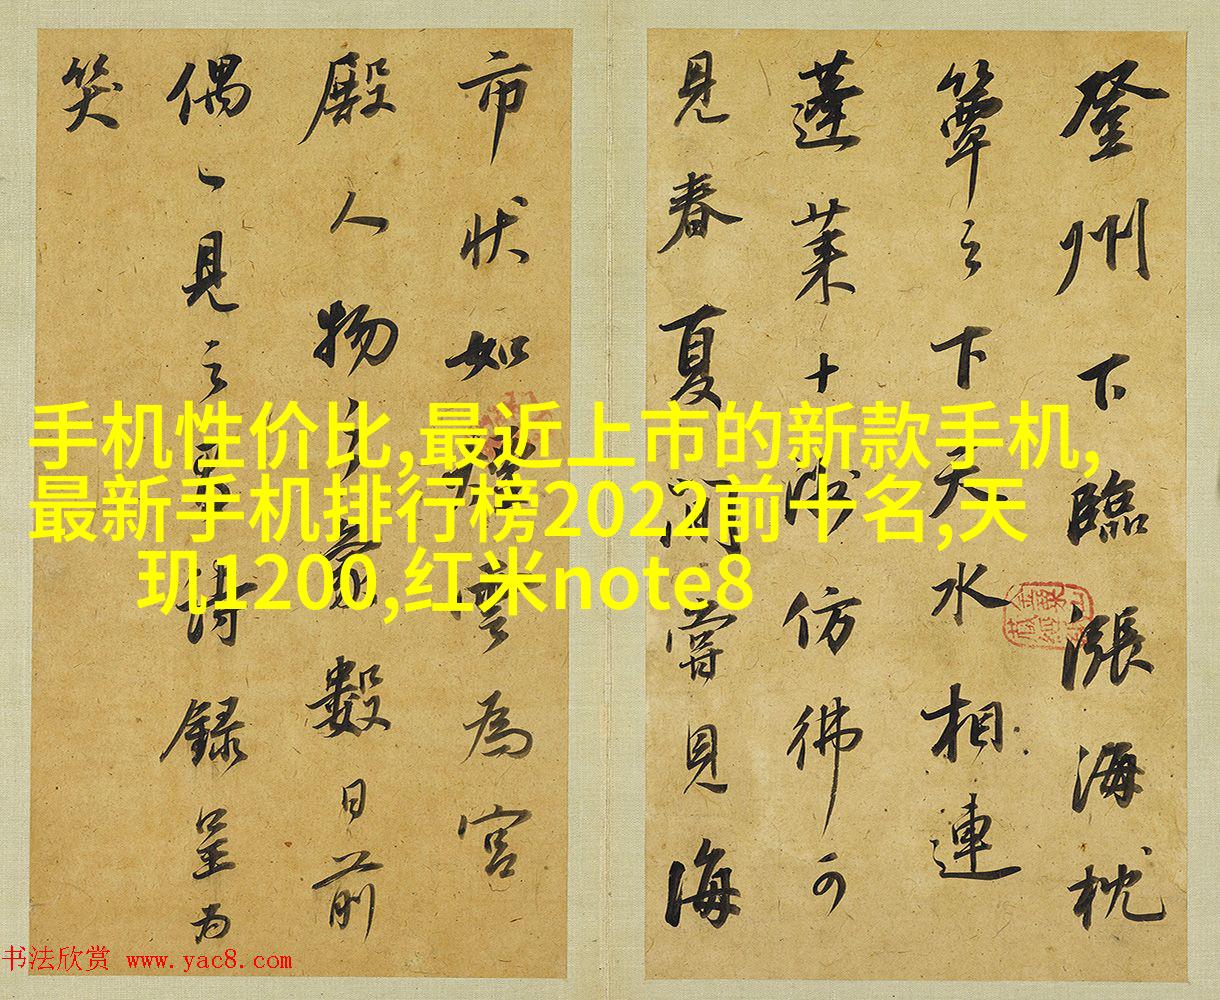 登州下臨漲海枕
簟之下天水相連
蓬莱十洲仿彿可
見春夏間嘗見海
市狀如煙雲為宮
殿人物之象數日前
偶〻見之詩録呈為
笑
手机性价比,最近上市的新款手机,
最新手机排行榜2022前十名,天
玑1200,红米note8
书法欣赏 www.yac8.com